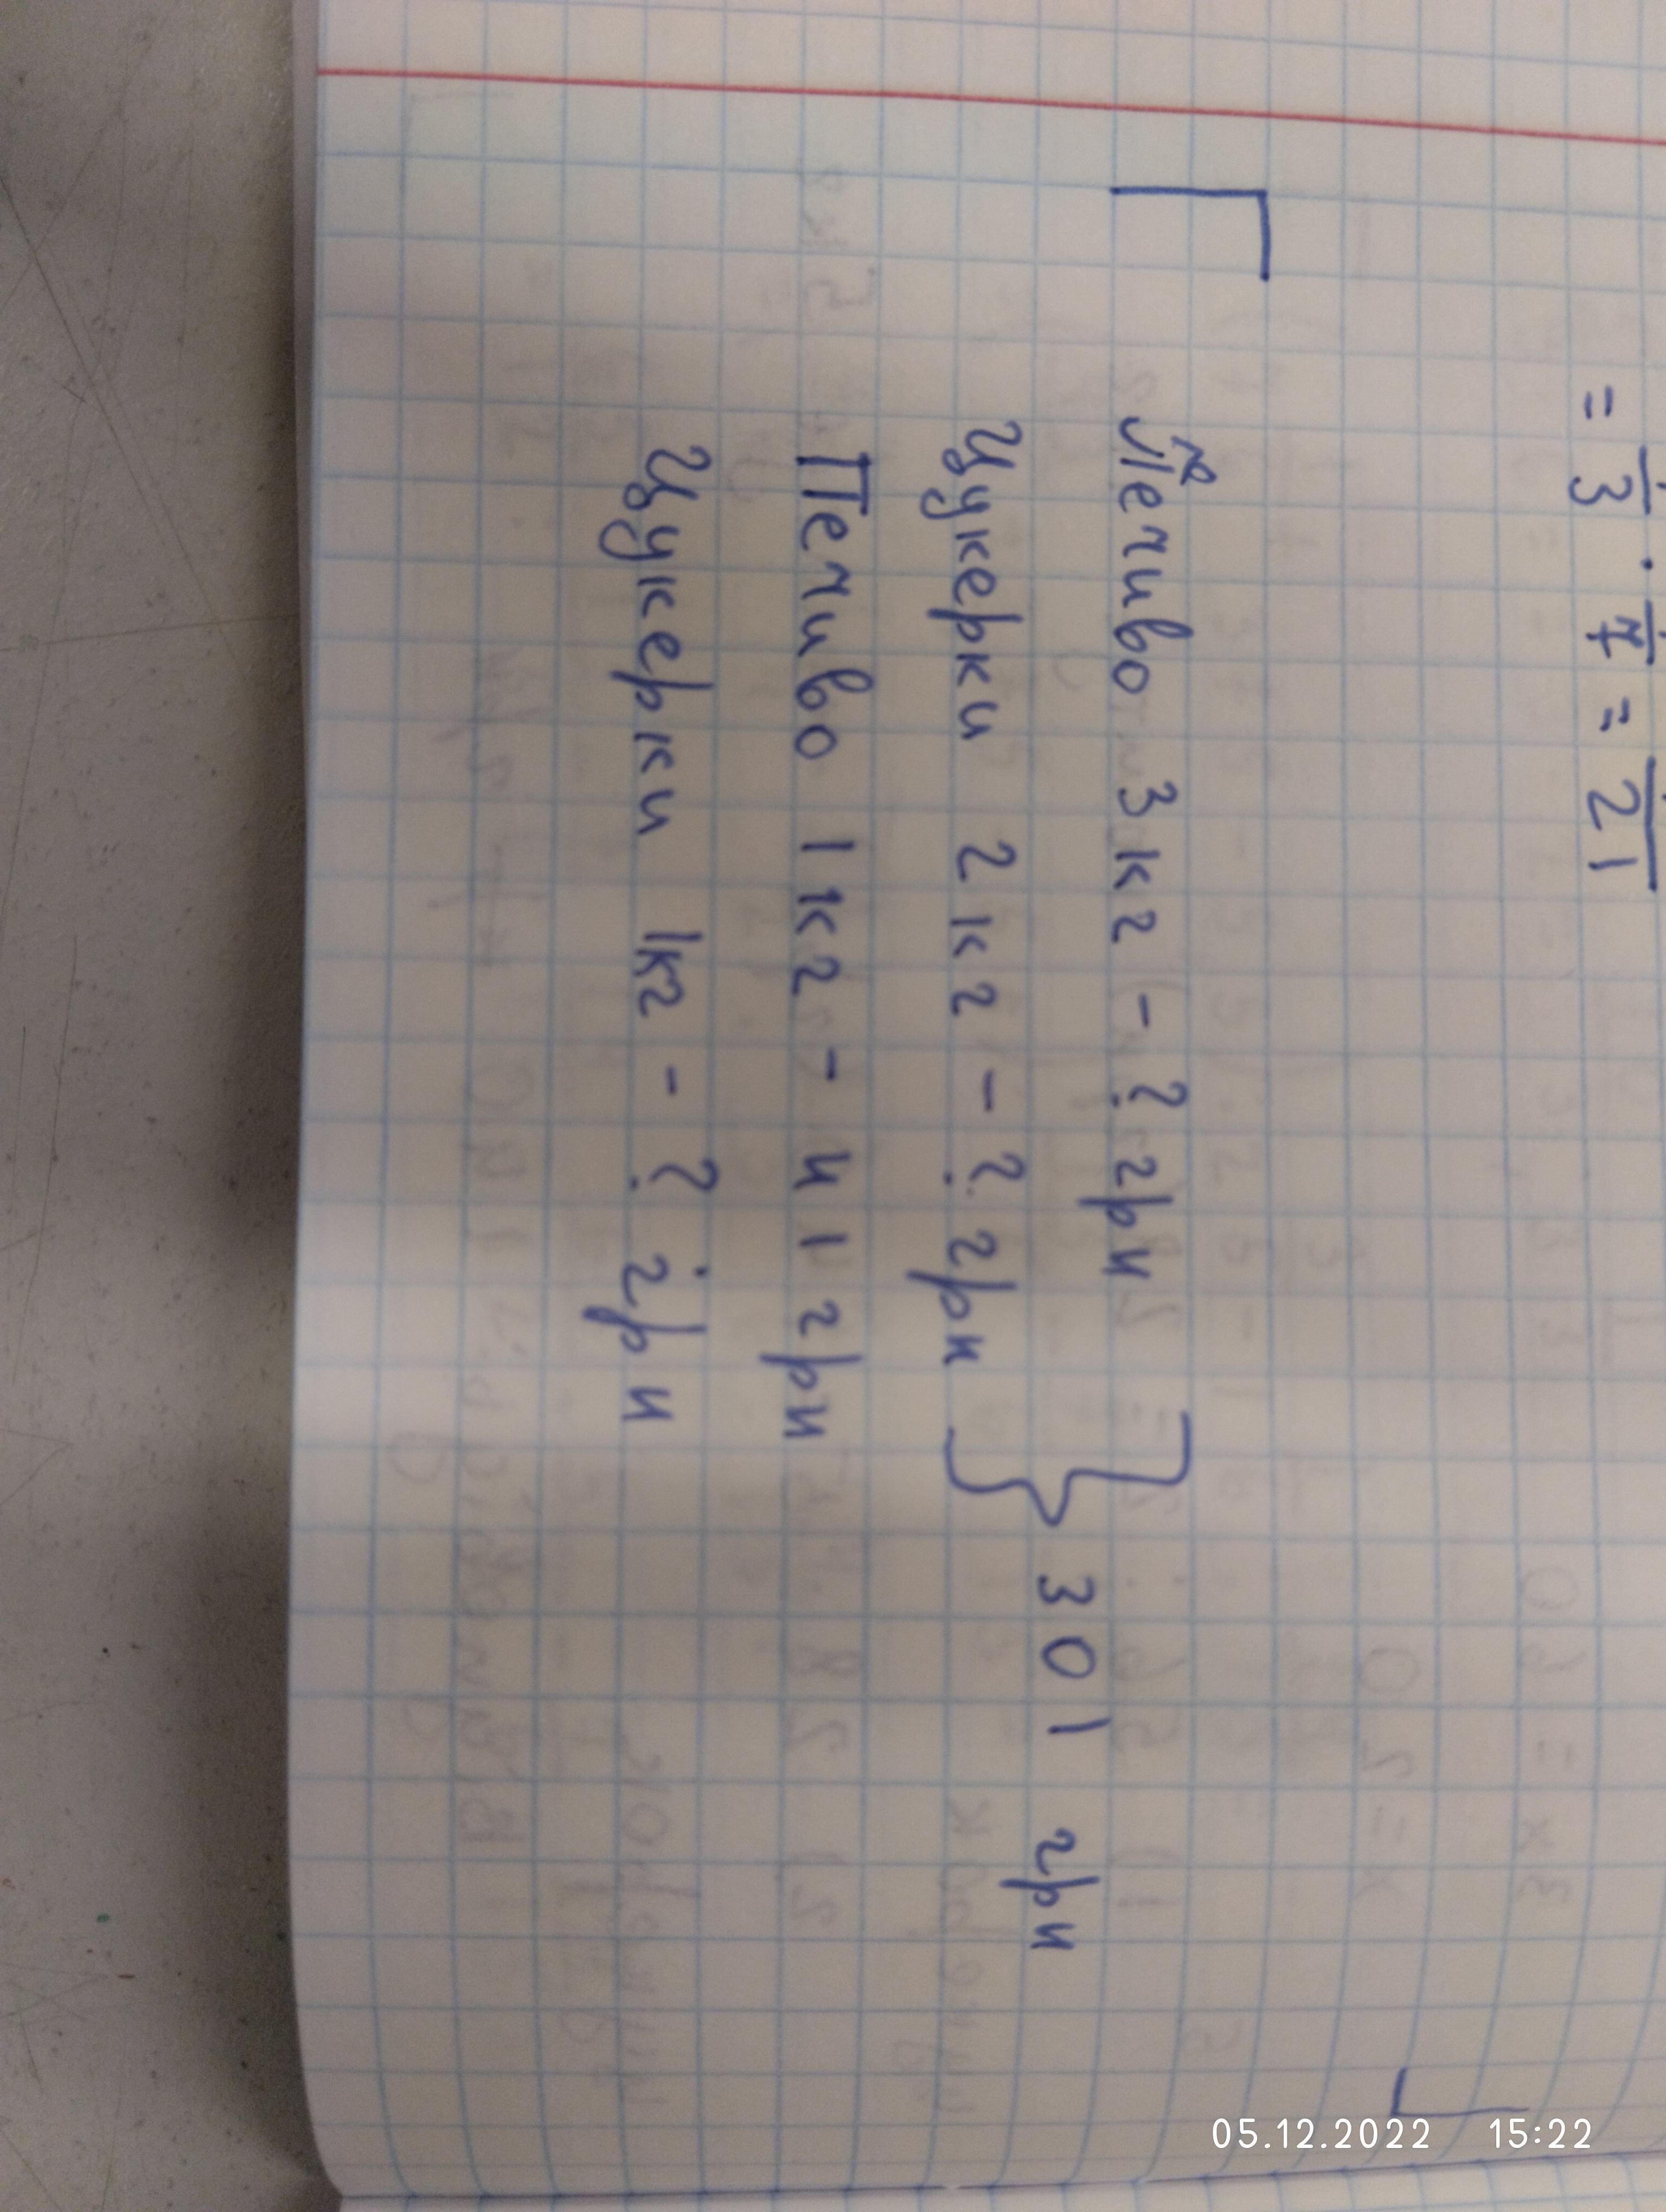 = 1/3 · 1/7 = 1/21
Печиво 3 кг - ? грн
Цукерки 2 кг - ? грн } 301 грн
Печиво 1 кг - 41 грн
Цукерки 1кг - ? грн
05.12.2022 15:22